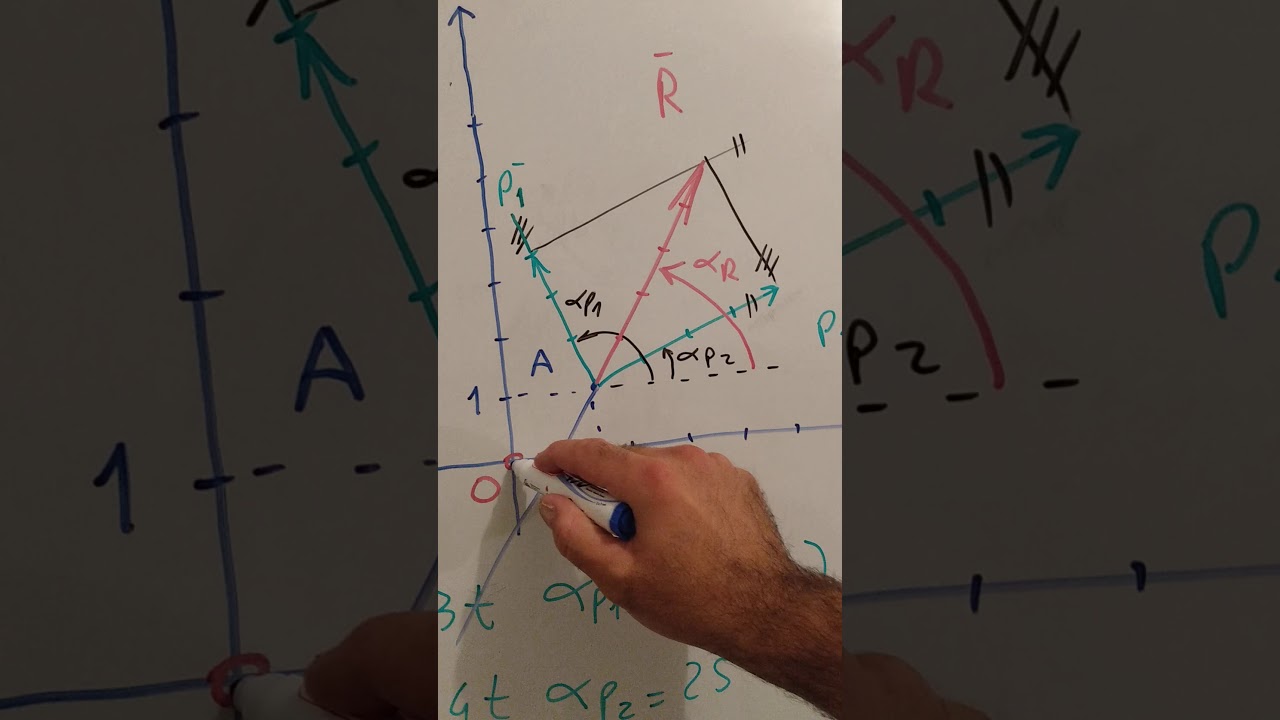 R̄
P̄₁
αR
αP₁
A
αP₂
1
O
3t αP₁
4t αP₂ = 25